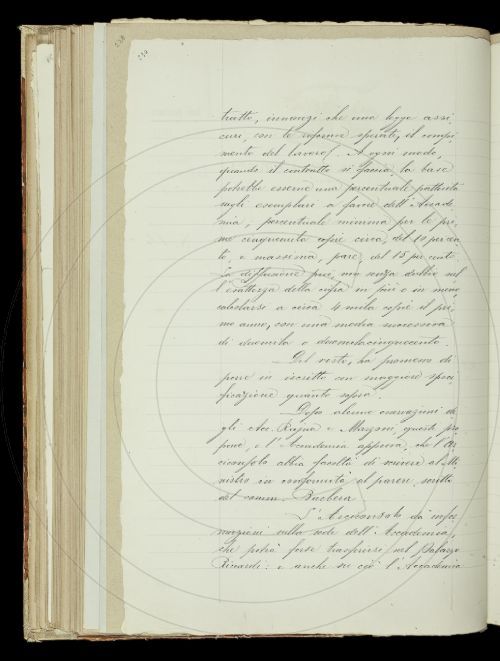 tratto, innanzi che una legge assi,
curi, con le riforme sperate, il compi,
mento del lavoro. A ogni modo,
quando il contratto si faccia, la base
potrebbe esserne una percentuale pattuita
sugli esemplari a favore dell'Accade
mia; percentuale minima per le pri,
me cinquecento copie circa, del 10 per cen
to, e massima, pare, del 15 per cento.
La diffusione può, ma senza dubbio sul
l'esattezza della cifra in più o in meno,
calcolarsi a circa 4 mila copie il pri,
mo anno, con una media successiva
di duemila o duemilacinquecento.
Del resto, ha promesso di
porre in iscritto con maggiore speci
ficazione quanto sopra.
Dopo alcune osservazioni de
gli Acc. Rajna e Mazzoni, questi pro
pone, e l'Accademia approva, che l'Ar
ciconsolo abbia facoltà di scrivere al Mi
nistro in conformità al parere scritto
del comm. Barbèra.
L'Arciconsolo dà infor
mazioni sulla sede dell'Accademia,
che potrà forse trasferirsi nel Palazzo
Riccardi: e anche su ciò l'Accademia